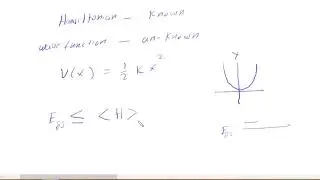 Hamiltonian - Known
wave function - un-known
V(x) = 1/2 K x²
y
E_gs ≤ <H>
E_gs